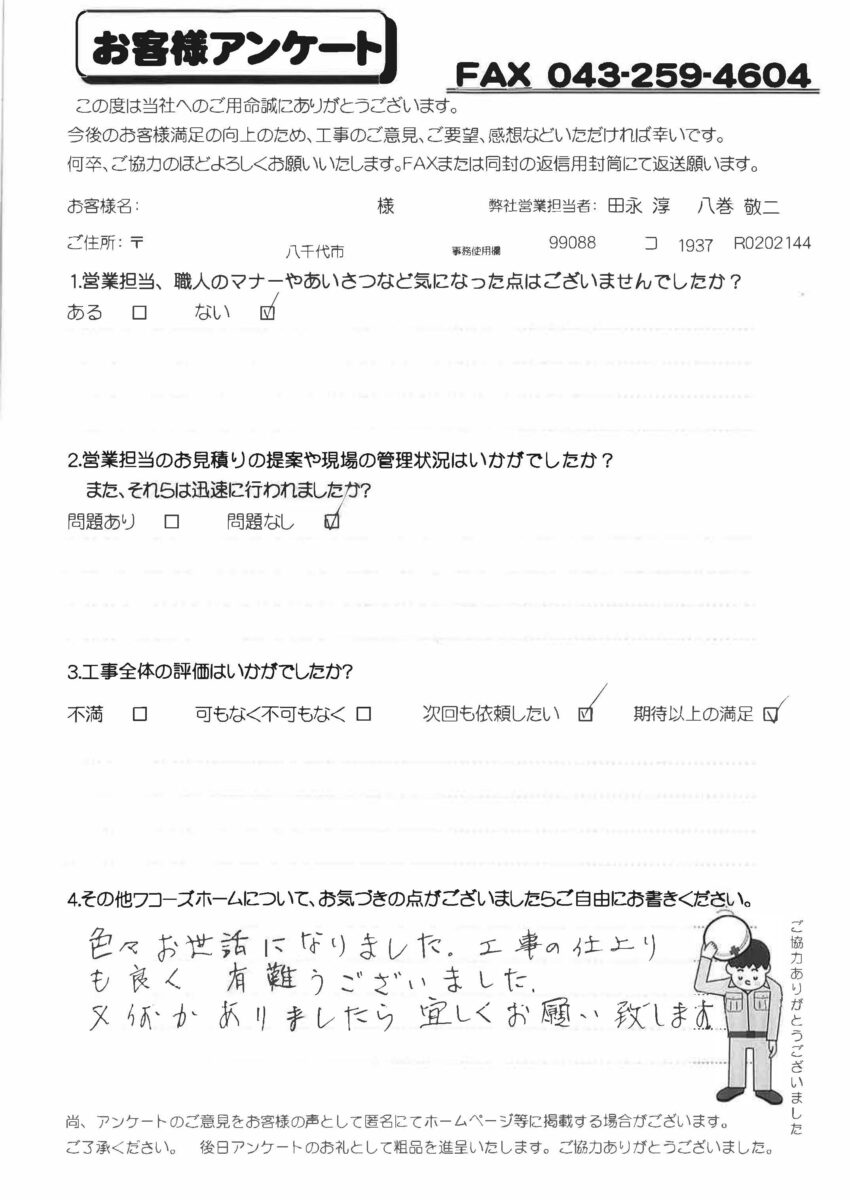 お客様アンケート
FAX 043-259-4604
この度は当社へのご用命誠にありがとうございます。
今後のお客様満足の向上のため、工事のご意見、ご要望、感想などいただければ幸いです。
何卒、ご協力のほどよろしくお願いいたします。FAXまたは同封の返信用封筒にて返送願います。
お客様名: 様 弊社営業担当者: 田永 淳 八巻 敬二
ご住所: 〒 八千代市 事務使用欄 99088 コ 1937 R0202144
1.営業担当、職人のマナーやあいさつなど気になった点はございませんでしたか？
ある □ ない ☑
2.営業担当のお見積りの提案や現場の管理状況はいかがでしたか？
また、それらは迅速に行われましたか?
問題あり □ 問題なし ☑
3.工事全体の評価はいかがでしたか?
不満 □ 可もなく不可もなく □ 次回も依頼したい ☑ 期待以上の満足 ☑
4.その他ワコーズホームについて、お気づきの点がございましたらご自由にお書きください。
色々お世話になりました。工事の仕上り
も良く 有難うございました.
又何かありましたら宜しくお願い致します
ご協力ありがとうございました
尚、アンケートのご意見をお客様の声として匿名にてホームページ等に掲載する場合がございます。
ご了承ください。 後日アンケートのお礼として粗品を進呈いたします。ご協力ありがとうございました。